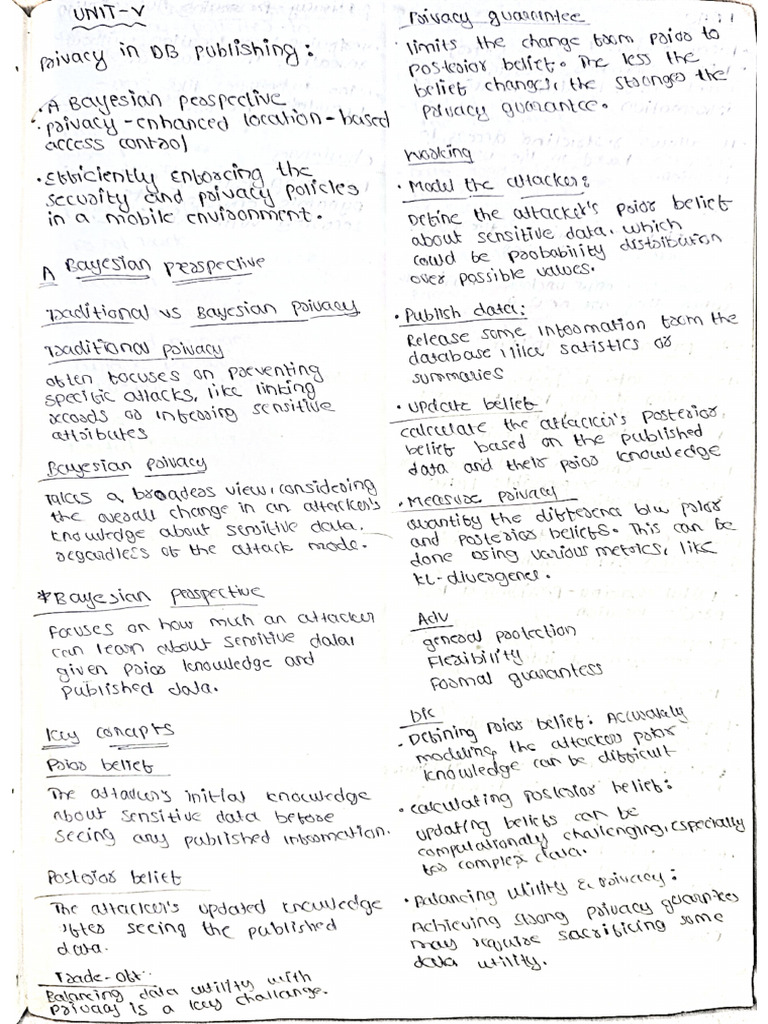 UNIT-V
privacy in DB publishing:
• A Bayesian perspective
• privacy-enhanced location-based
access control
• Efficiently enforcing the
security and privacy policies
in a mobile environment.
A Bayesian perspective
Traditional vs Bayesian privacy
Traditional privacy
often focuses on preventing
specific attacks, like linking
records or inferring sensitive
attributes
Bayesian privacy
Takes a broaders view, considering
the overall change in an attacker's
knowledge about sensitive data.
regardless of the attack mode.
*Bayesian perspective
Focuses on how much an attacker
can learn about sensitive data,
given prior knowledge and
published data.
Key concepts
Prior belief
The attackers initial knowledge
about sensitive data before
seeing any published information.
Posterior belief
The attacker's updated knowledge
after seeing the published
data.
Trade-off:
Balancing data utility with
privacy is a key challenge.
Privacy guarantee
limits the change from prior to
posterior belief. The less the
belief changes, the stronger the
privacy guarantee.
Working
• Model the attacker:
Define the attacker's prior belief
about sensitive data, which
could be probability distribution
over possible values.
• Publish data:
Release some information from the
database like satistics or
summaries
• update belief
calculate the attacker's posterior
belief based on the published
data and their prior knowledge
• Measure privacy
quantify the difference b/w prior
and posterior beliefs. This can be
done using various metrics, like
KL-divergence.
Adv
general protection
Flexibility
Formal guarantess
Dis
• Defining prior belief: Accurately
modeling the attackers prior
knowledge can be difficult
• calculating posterior belief:
updating beliefs can be
computationally challenging, especially
for complex data.
• Balancing utility & privacy:
Achieving strong privacy guarantees
may require sacrificing some
data utility.